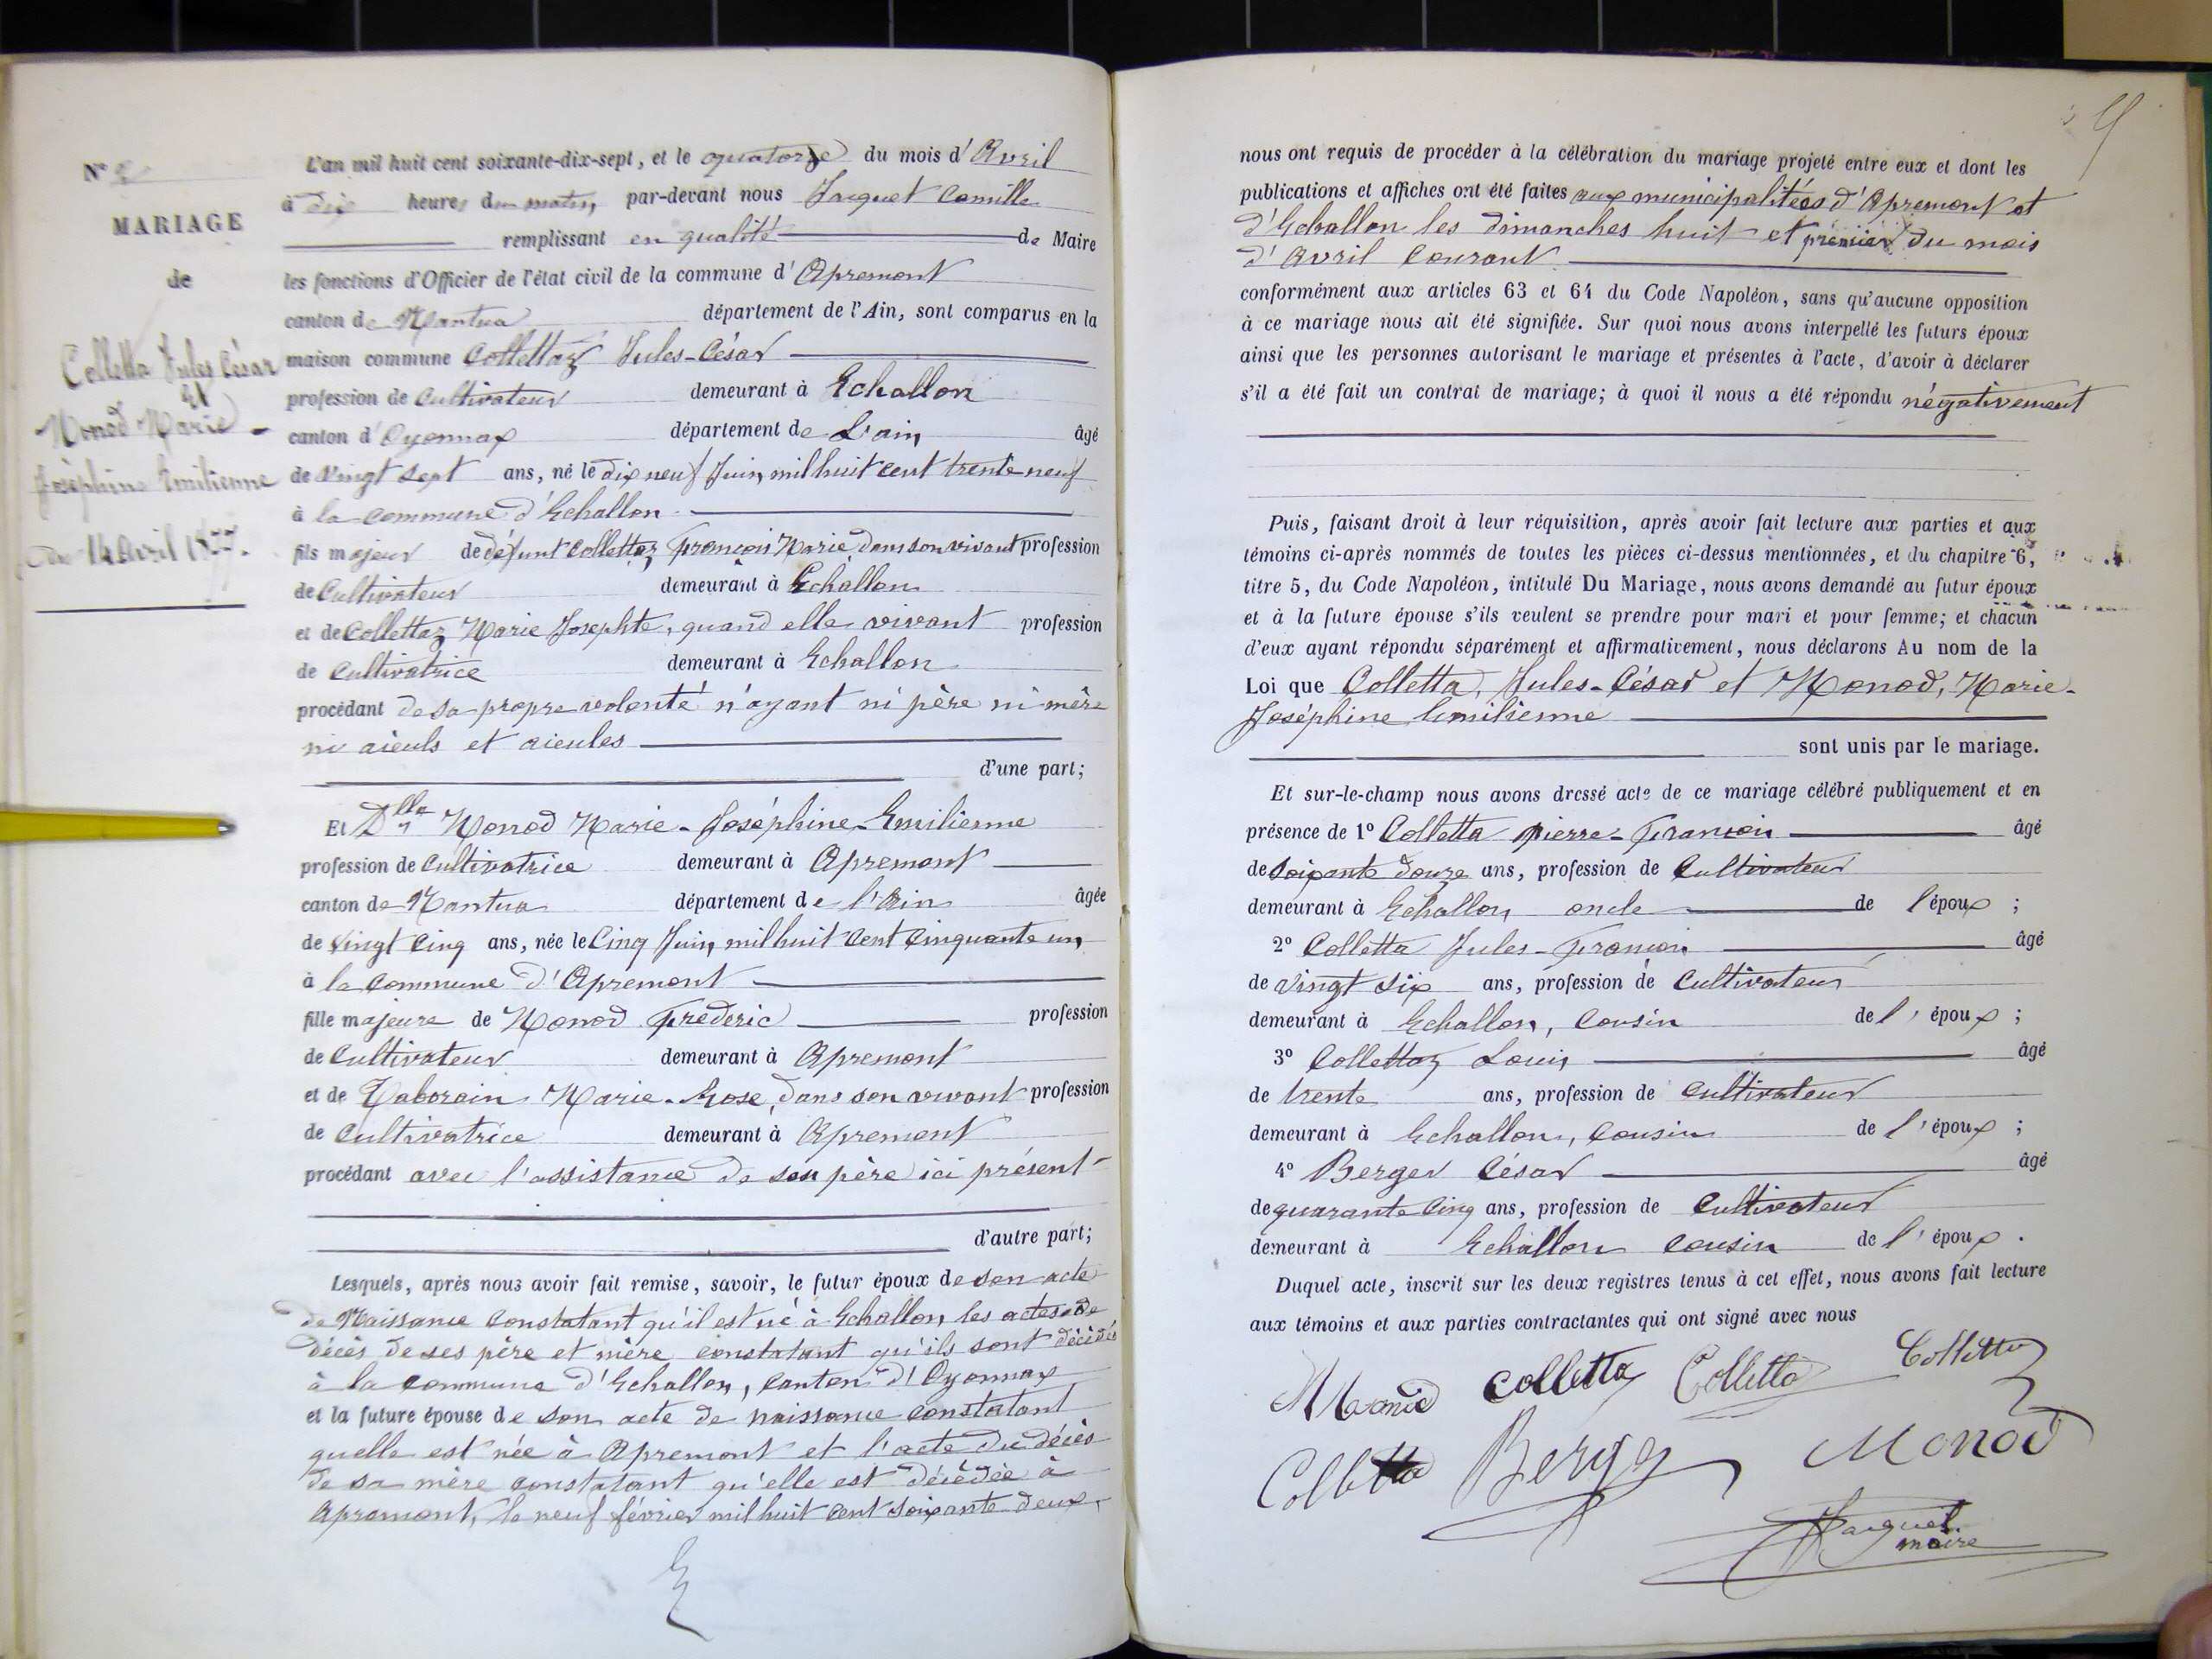 N° 2
MARIAGE
de
Colletta Jules César
et
Monod Marie
Joséphine Emilienne
du 14 Avril 1877.
L'an mil huit cent soixante-dix-sept, et le quatorze du mois d'Avril
à dix heures du matin, par-devant nous Jacquet Camille
remplissant en qualité de Maire
les fonctions d'Officier de l'état civil de la commune d'Apremont
canton de Mantua département de l'Ain, sont comparus en la
maison commune Collettaz Jules-César
profession de Cultivateur demeurant à Echallon
canton d'Oyonnax département de L'ain âgé
de vingt sept ans, né le dix neuf Juin mil huit cent trente neuf
à la commune d'Echallon
fils majeur de défunt Collettaz François Marie dans son vivant profession
de Cultivateur demeurant à Echallon
et de Collettaz Marie Josephte, quand elle vivant profession
de cultivatrice demeurant à Echallon
procédant de sa propre volonté n'ayant ni père ni mère
ni aieuls et aieules
d'une part;
Et Dlle Monod Marie-Joséphine-Emilienne
profession de Cultivatrice demeurant à Apremont
canton de Mantua département de l'Ain âgée
de vingt cinq ans, née le Cinq Juin mil huit cent cinquante un
à la commune d'Apremont
fille majeure de Monod Frederic profession
de Cultivateur demeurant à Apremont
et de Taborain Marie-Rose, dans son vivant profession
de Cultivatrice demeurant à Apremont
procédant avec l'assistance de son père ici présent
d'autre part;
Lesquels, après nous avoir fait remise, savoir, le futur époux de son acte
de Naissance constatant qu'il est né à Echallon, les actes de
décès de ses père et mère constatant qu'ils sont décédés
à la commune d'Echallon, canton d'Oyonnax
et la future épouse de son acte de naissance constatant
quelle est née à Apremont et l'acte du décès
de sa mère constatant qu'elle est décédée à
Apremont, le neuf février mil huit cent soixante deux,
9
nous ont requis de procéder à la célébration du mariage projeté entre eux et dont les
publications et affiches ont été faites aux municipalitées d'Apremont et
d'Echallon les dimanches huit et premier du mois
d'Avril Courant
conformément aux articles 63 et 64 du Code Napoléon, sans qu'aucune opposition
à ce mariage nous ait été signifiée. Sur quoi nous avons interpellé les futurs époux
ainsi que les personnes autorisant le mariage et présentes à l'acte, d'avoir à déclarer
s'il a été fait un contrat de mariage; à quoi il nous a été répondu négativement
Puis, faisant droit à leur réquisition, après avoir fait lecture aux parties et aux
témoins ci-après nommés de toutes les pièces ci-dessus mentionnées, et du chapitre 6,
titre 5, du Code Napoléon, intitulé Du Mariage, nous avons demandé au futur époux
et à la future épouse s'ils veulent se prendre pour mari et pour femme; et chacun
d'eux ayant répondu séparément et affirmativement, nous déclarons Au nom de la
Loi que Colletta, Jules-César et Monod, Marie-
Joséphine Emilienne
sont unis par le mariage.
Et sur-le-champ nous avons dressé acte de ce mariage célébré publiquement et en
présence de 1° Colletta pierre-François âgé
de soixante douze ans, profession de Cultivateur
demeurant à Echallon oncle de l'époux ;
2° Colletta Jules-François âgé
de vingt six ans, profession de Cultivateur
demeurant à Echallon, Cousin de l'époux ;
3° Collettaz Louis âgé
de trente ans, profession de cultivateur
demeurant à Echallon, Cousin de l'époux ;
4° Berger César âgé
de quarante cinq ans, profession de Cultivateur
demeurant à Echallon cousin de l'époux .
Duquel acte, inscrit sur les deux registres tenus à cet effet, nous avons fait lecture
aux témoins et aux parties contractantes qui ont signé avec nous
colletta Colletta Colletta
Colletta Berger Monod
Jacquet
maire